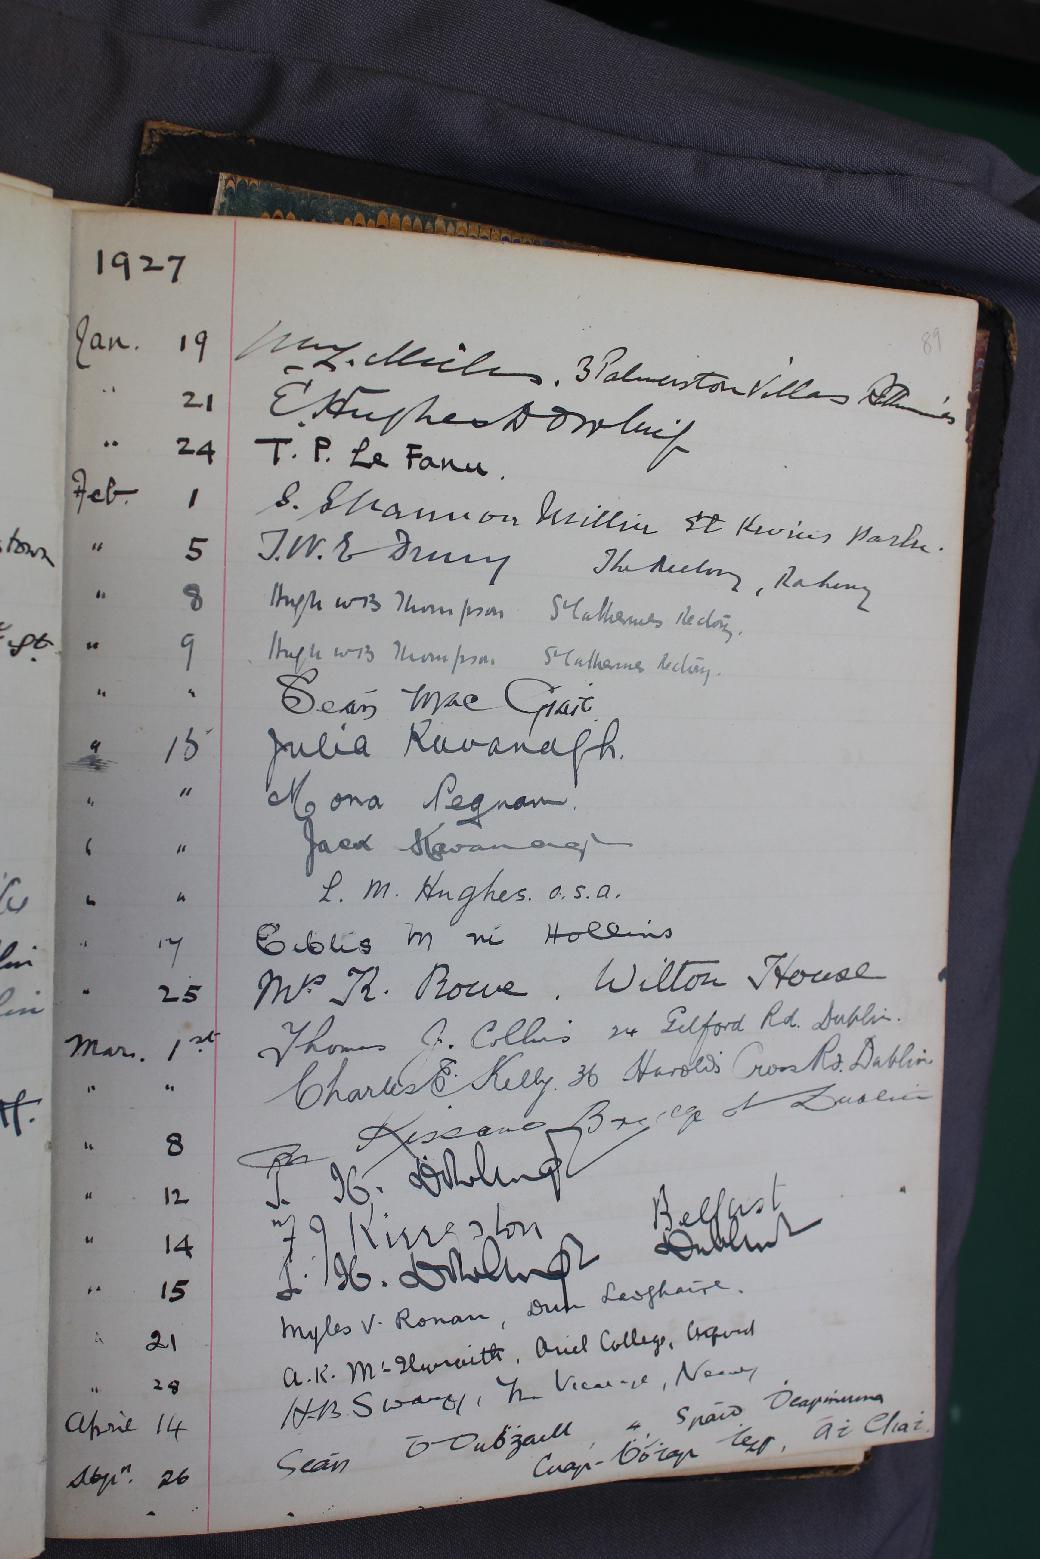 1927
89
Jan. 19 Wm J. Miles. 3 Palmerston Villas Rathmines
" 21 E. Hughes Dowling
" 24 T. P. Le Fanu.
Feb. 1 S. Shannon Millin St Kevins Park.
" 5 T.W.E. Drury The Rectory, Raheny
" 8 Hugh W B Thompson St Catherines Rectory.
" 9 Hugh W B Thompson St Catherines Rectory.
" " Seán Mac Giait
" 15 Julia Kavanagh.
" " Mona Pegnam.
" " Jack Kavanagh
" " L. M. Hughes. o.s.a.
" 17 Eiblis M ni
" 25 Mrs K. Rowe. Wilton House
Mar. 1st Thomas J. Collins 24 Gilford Rd. Dublin.
" " Charles E. Kelly. 36 Harold's Cross Rd. Dublin
" 8 Kissane Bridge St Dublin
" 12 J. H. Dowling
" 14 Belfast
" 15 J. H. Dowling Dublin
" 21 Myles V. Ronan, Dun Laoghaire.
" 28 A. K. McIlwraith, Oriel College, Oxford
April 14 H.B. Swanzy, The Vicarage, Newry
Sepn. 26 Seán